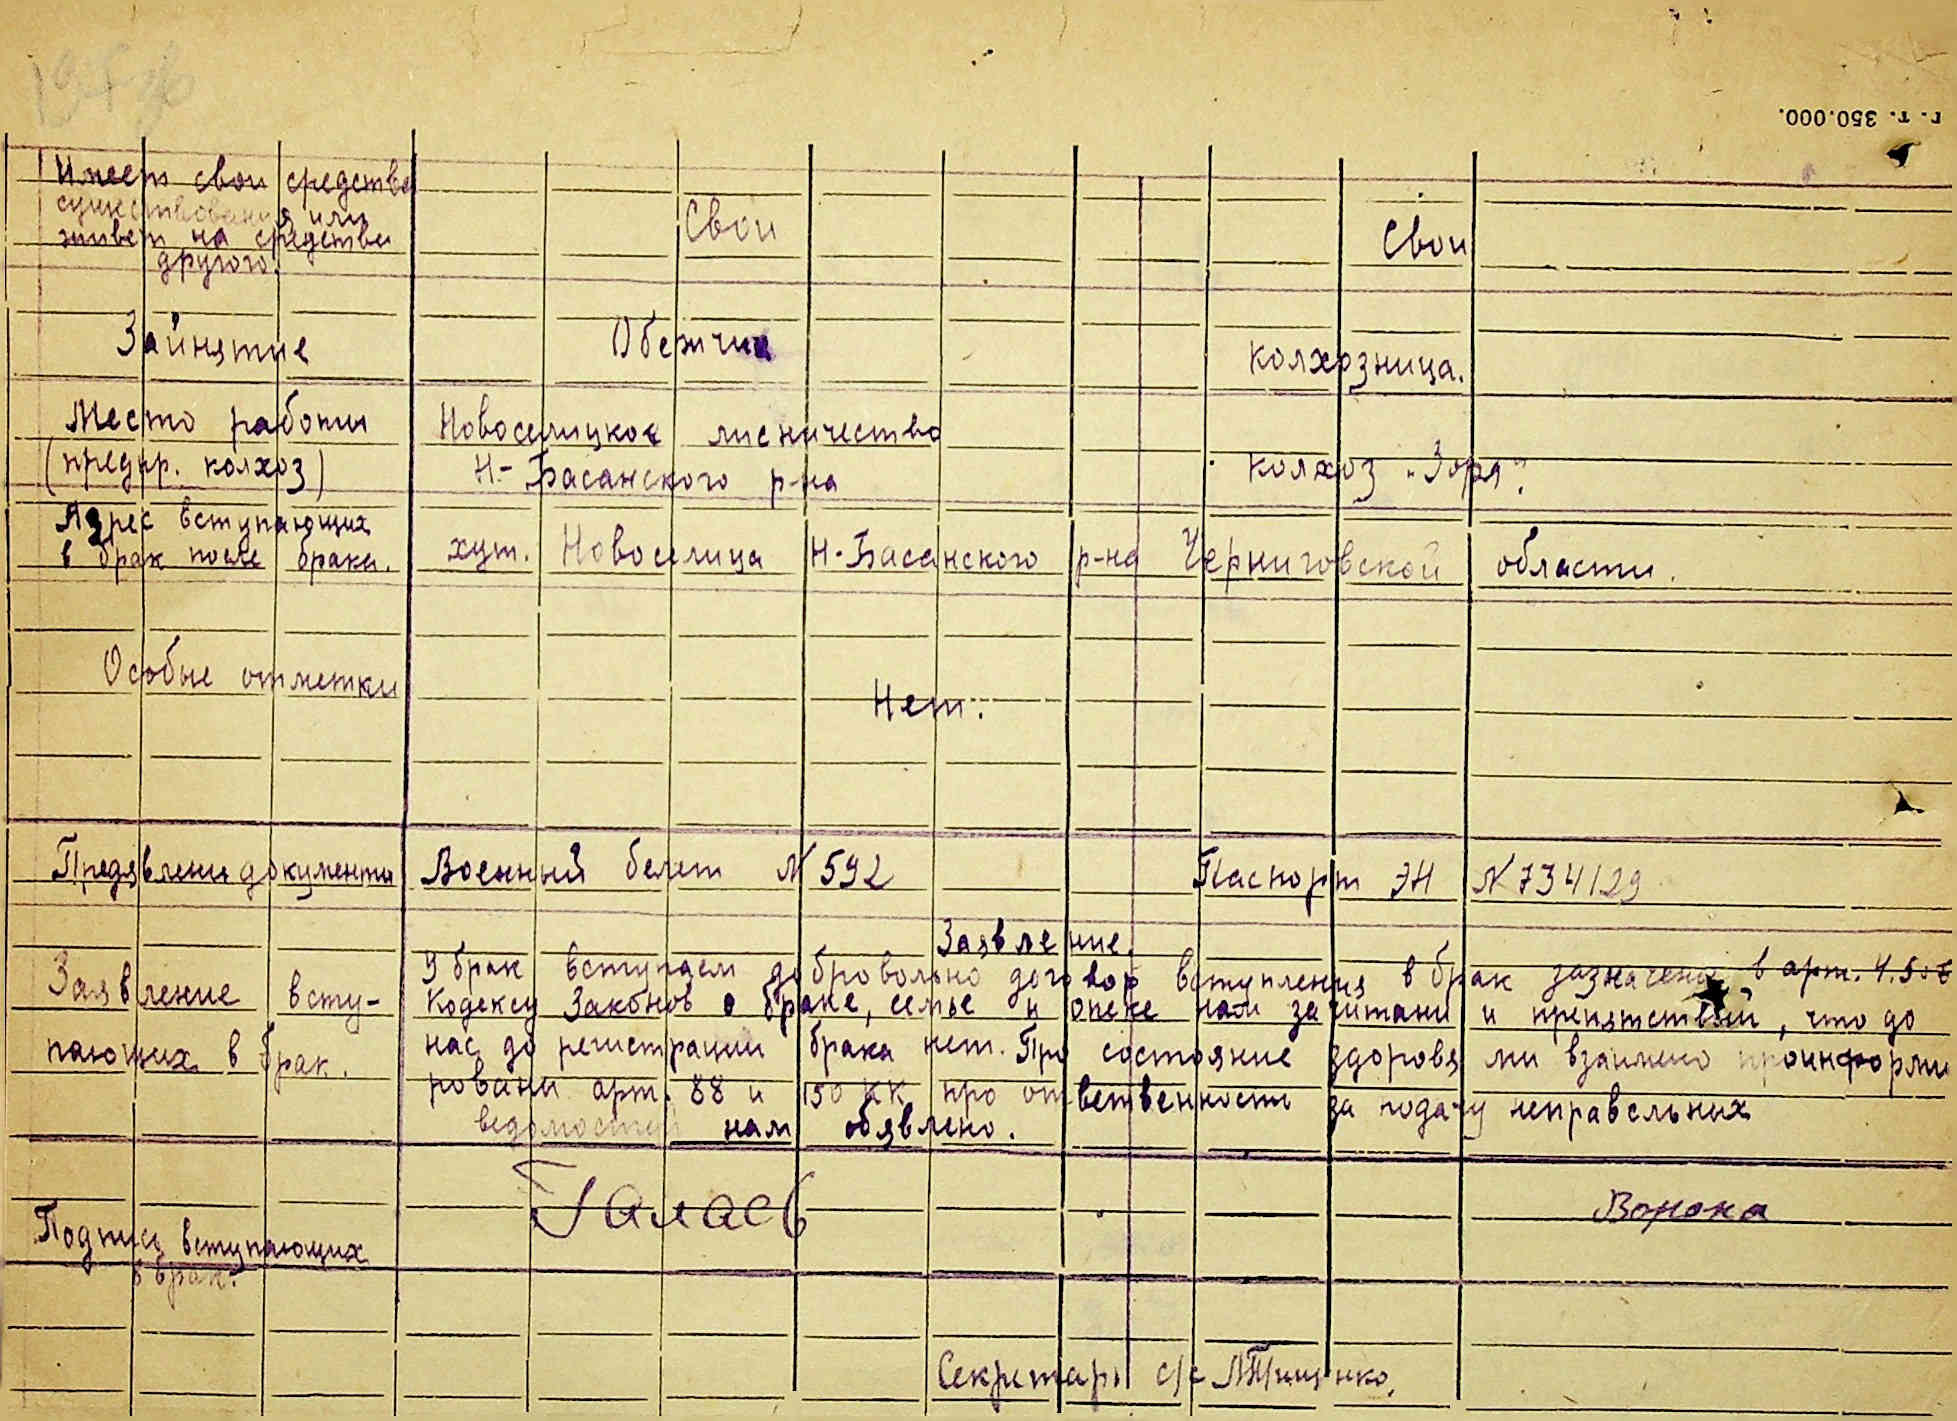 г. т. 350.000.
Имеет свои средства
существования или
живет на средства
другого.
Свои
Свои
Зайнятие
Обежчик
колхозница.
Место работи
(предпр. колхоз)
Новоселицкое лисничество
Н-Басанского р-на
колхоз "Зоря".
Адрес вступающих
в брак после брака.
хут. Новоселица Н-Басанского р-на Черниговской области.
Особые отметки
Нет.
Предявлени документи
Военный белет N 592
Паспорт ЭН N 734129
Заявление.
Заявление всту-
пающих в брак.
У брак вступаем добровольно договор вступления в брак зазначено в арт. 4.5 об
Кодексу Законов о браке, семье и опеке нам зачитани и препятствий, что до
нас до регистрации брака нет. Про состояние здоровя ми взаимено проинформи
ровани арт. 88 и 150 КК про ответвенности за подачу неправельних
ведомостей нам обявлено.
Подписи вступающих
в брак.
Галась
Ворона
Секретарь с/с